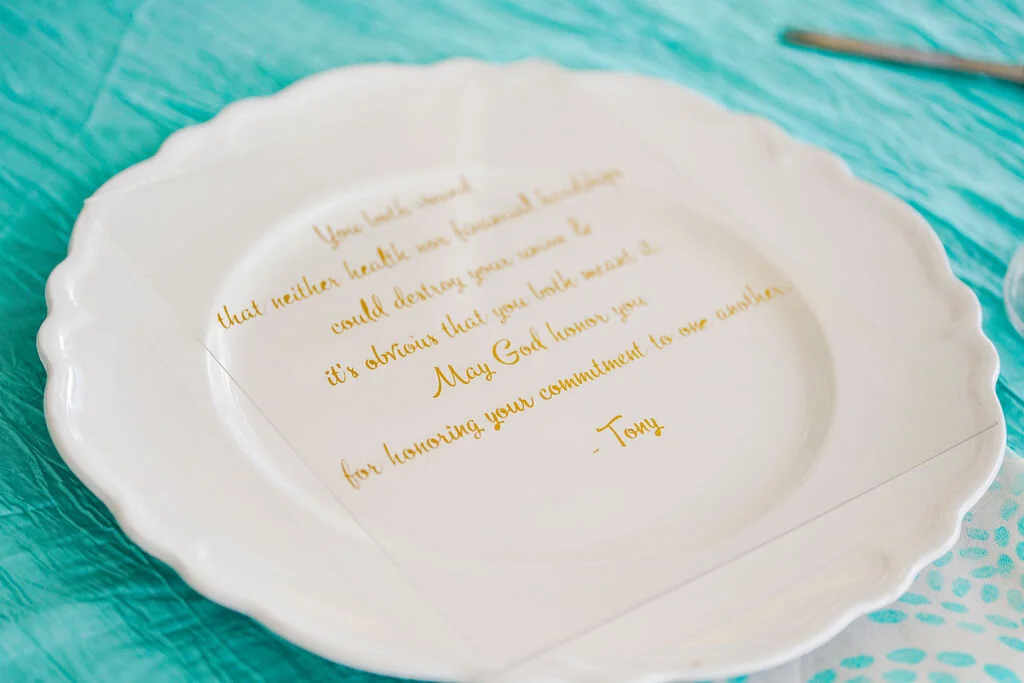 You both vowed
that neither health nor financial hardships
could destroy your union &
it's obvious that you both meant it.
May God honor you
for honoring your commitment to one another.
- Tony